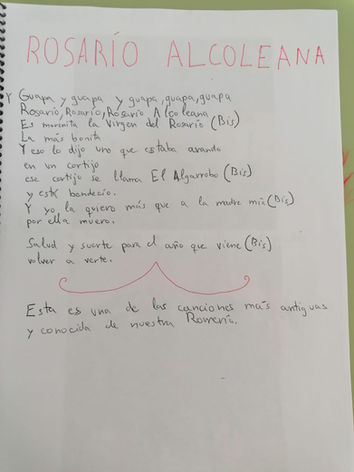 ROSARÍO ALCOLEANA
Y Guapa y guapa y guapa, guapa, guapa
Rosario, Rosario, Rosario Alcoleana
Es morenita la Virgen del Rosario (Bis)
La más bonita
Y eso lo dijo uno que estaba arando
en un cortijo
ese cortijo se llama El Algarrobo (Bis)
y está bendecío.
Y yo la quiero más que a la madre mía (Bis)
por ella muero.
Salud y suerte para el año que viene (Bis)
volver a verte.
Esta es una de las canciones más antiguas
y conocida de nuestra Romería.